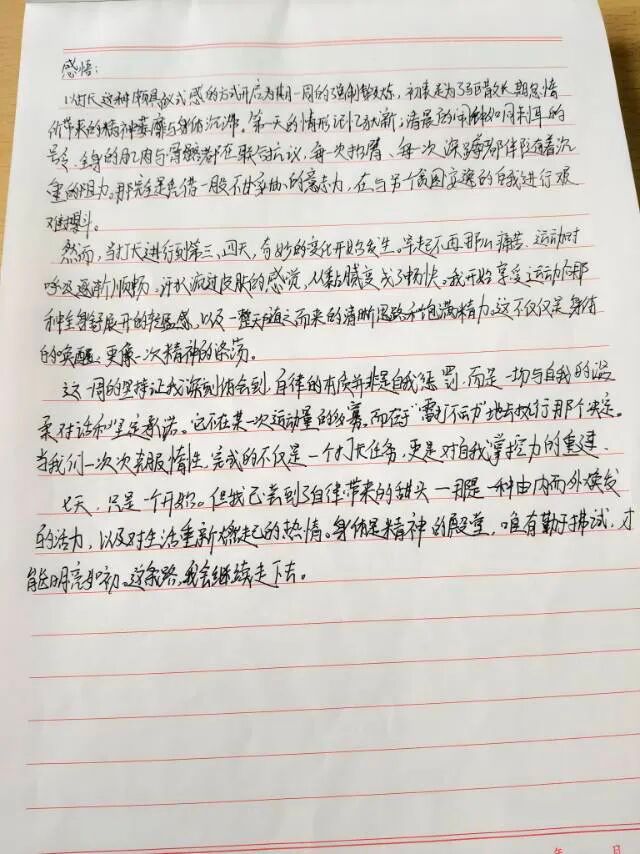 感悟:
以打卡这种颇具仪式感的方式开启为期一周的强制锻炼，初衷是为了驱散长期怠惰
所带来的精神萎靡与身体沉滞。第一天的情形记忆犹新；清晨的闹钟如同刺耳的
号令，全身的肌肉与骨骼都在联合抗议，每一次抬臂、每一次深蹲都伴随着沉
重的阻力。那完全是凭借一股不甘的意志力，在与另一个贪图安逸的自我进行艰
难搏斗。
然而，当打卡进行到第三、四天，奇妙的变化开始发生。早起不再那么痛苦，运动时
呼吸逐渐顺畅，汗水流过皮肤的感觉，从黏腻变成了畅快。我开始享受运动后那
种全身舒展开的轻盈感，以及一整天随之而来的清晰思路和饱满精力。这不仅仅是身体
的唤醒，更像一次精神的涤荡。
这一周的坚持让我深刻体会到，自律的本质并非是自我惩罚，而是一场与自我的温
柔对话和坚定承诺。它不在某一次运动量的多寡，而在于“雷打不动”地去执行那个决定。
当我们一次次克服惰性，完成的不仅是一个打卡任务，更是对自我掌控力的重建。
七天，只是一个开始。但我已尝到了自律带来的甜头—那是一种由内而外焕发
的活力，以及对生活重新燃起的热情。身体是精神的殿堂，唯有勤于拂拭，才
能明亮如初。这条路，我会继续走下去。
年 月